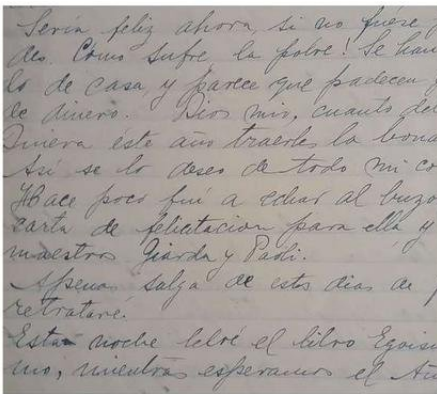 Sería feliz ahora, si no fuése
des. Cómo sufre la pobre! Se han
lo de casa, y parece que padecen
de dinero. Dios mio, cuanto de
Quiera éste año traerles la bona
Así se lo deseo de todo mi co
Hace poco fuí a echar al buzo
carta de felicitacion para ella y
maestros Giarda y Paoli.
Apenas salga de estos dias de
retrataré.
Esta noche leeré el libro Egois
mo, mientras esperamos el Añ